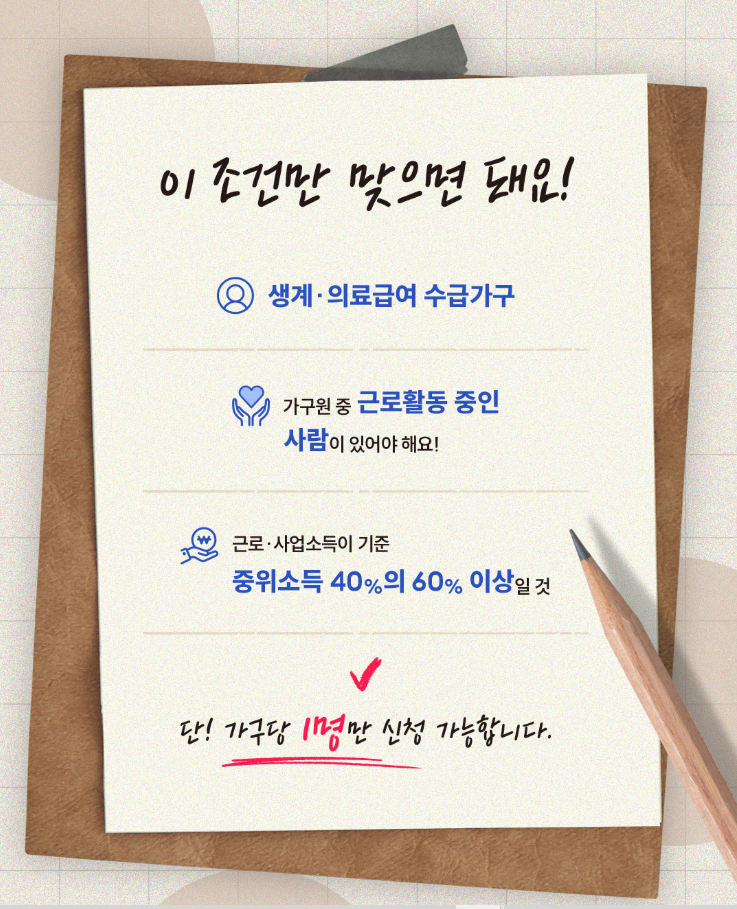 이 조건만 맞으면 돼요!
생계·의료급여 수급가구
가구원 중 근로활동 중인
사람이 있어야 해요!
근로·사업소득이 기준
중위소득 40%의 60% 이상일 것
단! 가구당 1명만 신청 가능합니다.